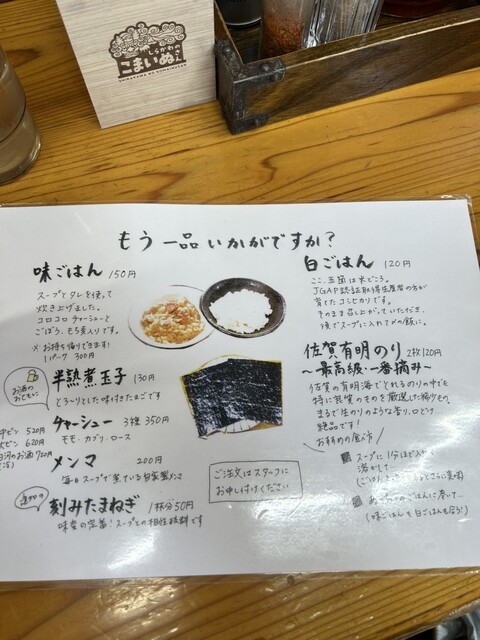 しらかわの
こまいぬさん
もう一品いかがですか?
味ごはん 150円
スープとタレを使って
炊き上げました。
コロコロチャーシューと
ごぼう、もち麦入りです。
※お持ち帰りできます!
1パーク 300円
お酒の
おともに
半熟煮玉子 130円
とろ〜りとした味付きたまごです
チャーシュー 3種 350円
モモ・カブリ・ロース
中ビン 520円
大ビン 620円
白河のお酒 720円
メンマ 200円
毎日スープで煮ている自家製メンマ
刻みたまねぎ 1杯分50円
味変の定番!スープとの相性抜群です
白ごはん 120円
ここ、三島は米どころ。
JGAP認証取得生産者の方が
育てたコシヒカリです。
そのまま召し上がっていただき、
後でスープに入れて〆の飯に。
佐賀有明のり 2枚120円
〜最高級・一番摘み〜
佐賀の有明海でとれるのりの中でも
特に良質のものを厳選した稀少もの。
まるで生のりのような香り、口どけ
絶品です!
お料めの食べ方
スープに1分ほど入れ
溶かして…
あったかごはんに巻いて…
(味ごはんも白ごはんも合う!)
ご注文はスタッフに
お申し付けください